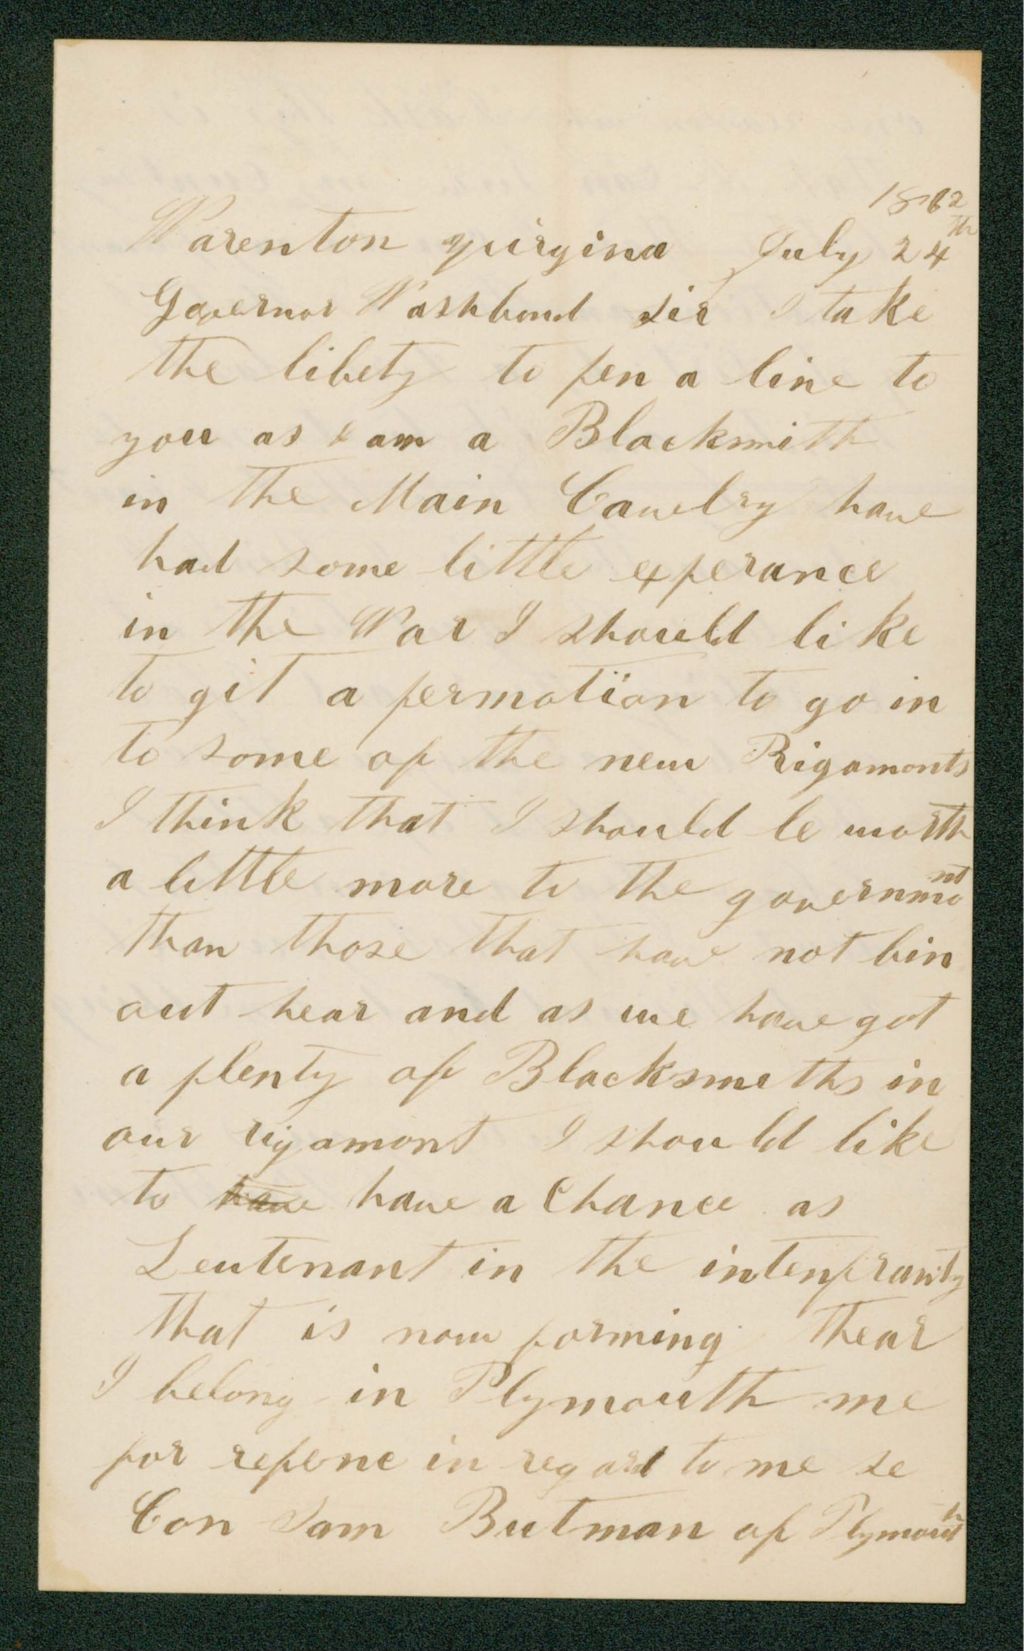 1862
Warenton virgina July 24th
Governor Washbond Sir I take
the libety to pen a line to
you as I am a Blacksmith
in the Main Cavelry have
had some little experance
in the War I should like
to git a permotion to go in
to some of the new Rigamonts
I think that I should be worth
a little more to the governmont
than those that have not bin
out hear and as we have got
a plenty of Blacksmeths in
our rigamont I should like
to have have a Chance as
Leutenant in the intenfranty
that is now forming thear
I belong in Plymouth me
for refence in regard to me se
Con Sam Butman of Plymouth